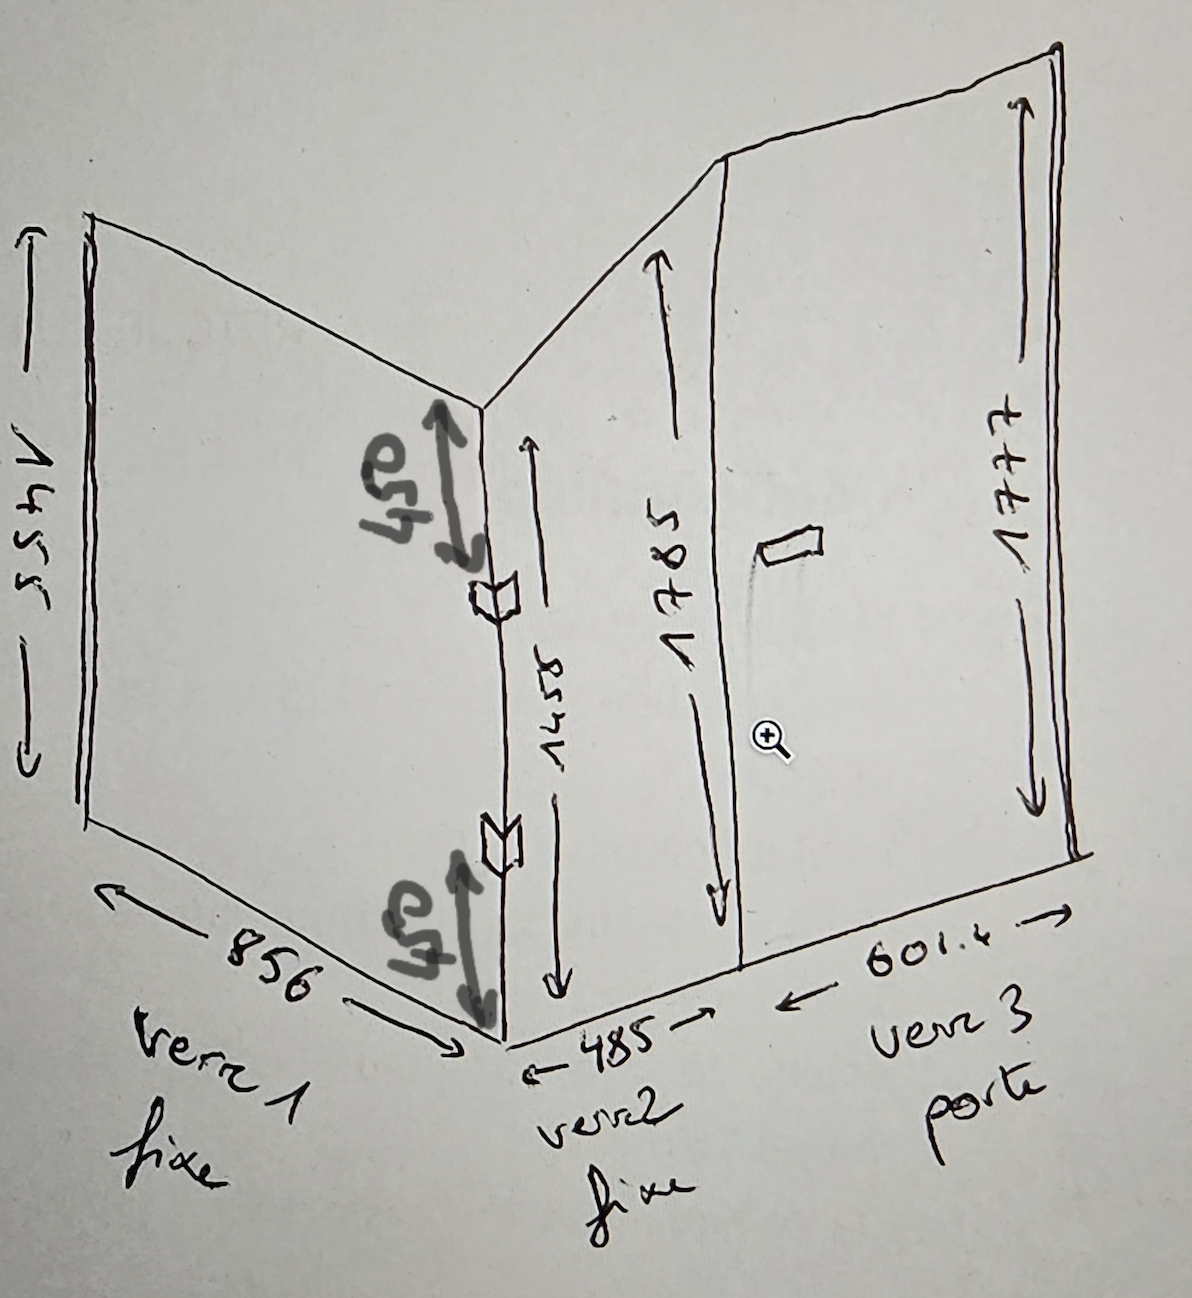 1455
450
450
1458
1785
1777
856
485
601.4
verre 1
fixe
verre 2
fixe
verre 3
porte